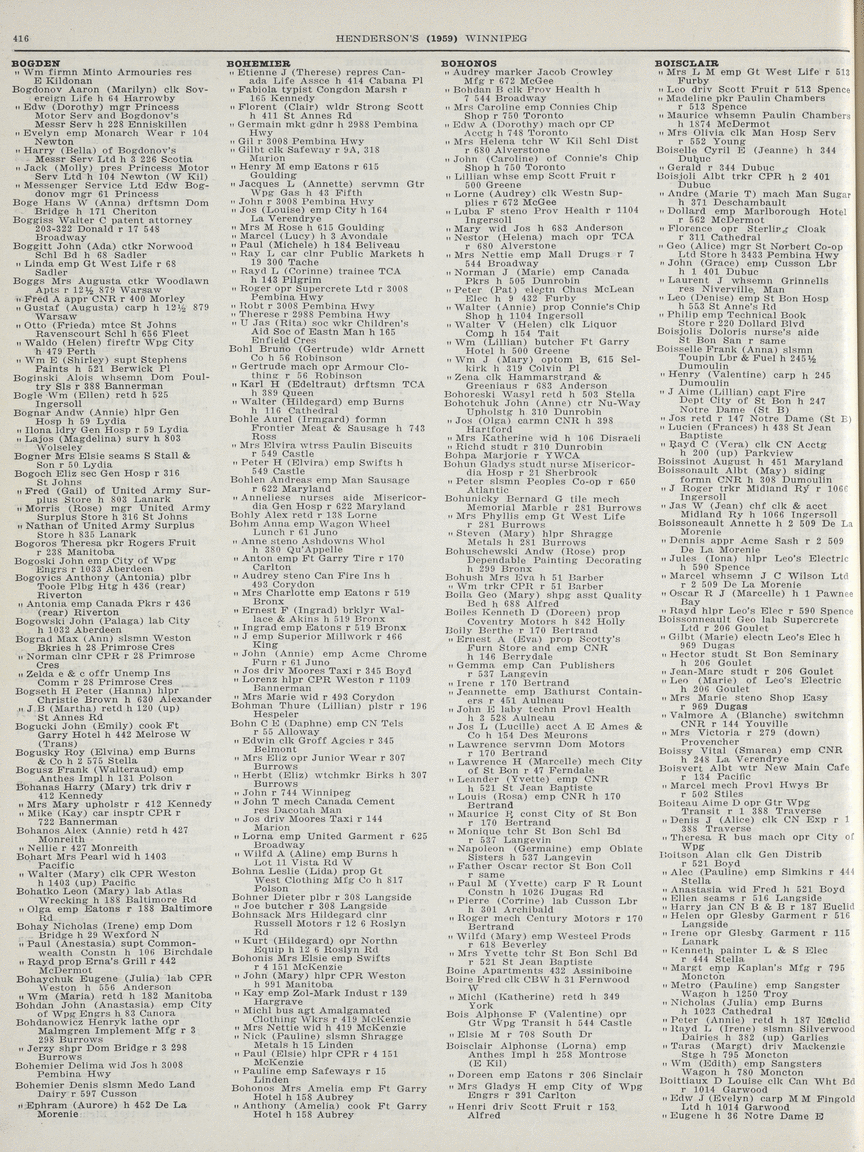 416
HENDERSON'S (1959) WINNIPEG
BOGDEN
" Wm firmn Minto Armouries res
E Kildonan
Bogdonov Aaron (Marilyn) clk Sov-
ereign Life h 64 Harrowby
" Edw (Dorothy) mgr Princess
Motor Serv and Bogdonov's
Messr Serv h 228 Enniskillen
" Evelyn emp Monarch Wear r 104
Newton
" Harry (Bella) of Bogdonov's
Messr Serv Ltd h 3 226 Scotia
" Jack (Molly) pres Princess Motor
Serv Ltd h 104 Newton (W Kil)
" Messenger Service Ltd Edw Bog-
donov mgr 61 Princess
Boge Hans W (Anna) drftsmn Dom
Bridge h 171 Cheriton
Boggiss Walter C patent attorney
203-322 Donald r 17 548
Broadway
Boggitt John (Ada) ctkr Norwood
Schl Bd h 68 Sadler
" Linda emp Gt West Life r 68
Sadler
Boggs Mrs Augusta ctkr Woodlawn
Apts r 12½ 879 Warsaw
" Fred A appr CNR r 400 Morley
" Gustaf (Augusta) carp h 12½ 879
Warsaw
" Otto (Frieda) mtce St Johns
Ravenscourt Schl h 656 Fleet
" Waldo (Helen) fireftr Wpg City
h 479 Perth
" Wm E (Shirley) supt Stephens
Paints h 521 Berwick Pl
Boginski Alois whsemn Dom Poul-
try Sls r 388 Bannerman
Bogle Wm (Ellen) retd h 525
Ingersoll
Bognar Andw (Annie) hlpr Gen
Hosp h 59 Lydia
" Ilona ldry Gen Hosp r 59 Lydia
" Lajos (Magdelina) surv h 803
Wolseley
Bogner Mrs Elsie seams S Stall &
Son r 50 Lydia
Bogoch Eliz sec Gen Hosp r 316
St Johns
" Fred (Gail) of United Army Sur-
plus Store h 803 Lanark
" Morris (Rose) mgr United Army
Surplus Store h 316 St Johns
" Nathan of United Army Surplus
Store h 835 Lanark
Bogoros Theresa pkr Rogers Fruit
r 238 Manitoba
Bogoski John emp City of Wpg
Engrs h 1033 Aberdeen
Bogovics Anthony (Antonia) plbr
Toole Plbg Htg h 436 (rear)
Riverton
" Antonia emp Canada Pkrs r 436
(rear) Riverton
Bogowski John (Palaga) lab City
h 1032 Aberdeen
Bograd Max (Ann) slsmn Weston
Bkries h 28 Primrose Cres
" Norman clnr CPR r 28 Primrose
Cres
" Zelda e & c offr Unemp Ins
Comm r 28 Primrose Cres
Bogseth H Peter (Hanna) hlpr
Christie Brown h 630 Alexander
" J.B (Martha) retd h 120 (up)
St Annes Rd
Bogucki John (Emily) cook Ft
Garry Hotel h 442 Melrose W
(Trans)
Bogusky Roy (Elvina) emp Burns
& Co h 2 575 Stella
Bogusz Frank (Walteraud) emp
Anthes Impl h 131 Polson
Bohanas Harry (Mary) trk driv r
412 Kennedy
" Mrs Mary upholstr r 412 Kennedy
" Mike (Kay) car insptr CPR r
722 Bannerman
Bohanos Alex (Annie) retd h 427
Monreith
" Nellie r 427 Monreith
Bohart Mrs Pearl wid h 1403
Pacific
" Walter (Mary) clk CPR Weston
h 1403 (up) Pacific
Bohatko Leon (Mary) lab Atlas
Wrecking h 188 Baltimore Rd
" Olga emp Eatons r 188 Baltimore
Rd
Bohay Nicholas (Irene) emp Dom
Bridge h 29 Wexford N
" Paul (Anestasia) supt Common-
wealth Constn h 106 Birchdale
" Rayd prop Erna's Grill r 442
McDermot
Bohaychuk Eugene (Julia) lab CPR
Weston h 556 Anderson
" Wm (Maria) retd h 182 Manitoba
Bohdan John (Anastasia) emp City
of Wpg Engrs h 83 Canora
Bohdanowicz Henryk lathe opr
Malmgren Implement Mfg r 3
298 Burrows
" Jerzy shpr Dom Bridge r 3 298
Burrows
Bohemier Delima wid Jos h 3008
Pembina Hwy
Bohemier Denis slsmn Medo Land
Dairy r 597 Cusson
" Ephram (Aurore) h 452 De La
Morenie
BOHEMIER
" Etienne J (Therese) repres Can-
ada Life Assce h 414 Cabana Pl
" Fabiola typist Congdon Marsh r
165 Kennedy
" Florent (Clair) wldr Strong Scott
h 411 St Annes Rd
" Germain mkt gdnr h 2988 Pembina
Hwy
" Gil r 3008 Pembina Hwy
" Gilbt clk Safeway r 9A, 318
Marion
" Henry M emp Eatons r 615
Goulding
" Jacques L (Annette) servmn Gtr
Wpg Gas h 43 Fifth
" John r 3008 Pembina Hwy
" Jos (Louise) emp City h 164
La Verendrye
" Mrs M Rose h 615 Goulding
" Marcel (Lucy) h 3 Avondale
" Paul (Michele) h 184 Beliveau
" Ray L car clnr Public Markets h
19 300 Tache
" Rayd L (Corinne) trainee TCA
h 143 Pilgrim
" Roger opr Supercrete Ltd r 3008
Pembina Hwy
" Robt r 3008 Pembina Hwy
" Therese r 2988 Pembina Hwy
" U Jas (Rita) soc wkr Children's
Aid Soc of Eastn Man h 165
Enfield Cres
Bohl Bruno (Gertrude) wldr Arnett
Co h 56 Robinson
" Gertrude mach opr Armour Clo-
thing r 56 Robinson
" Karl H (Edeltraut) drftsmn TCA
h 389 Queen
" Walter (Hildegard) emp Burns
h 116 Cathedral
Bohle Aurel (Irmgard) formn
Frontier Meat & Sausage h 743
Ross
" Mrs Elvira wtrss Paulin Biscuits
r 549 Castle
" Peter H (Elvira) emp Swifts h
549 Castle
Bohlen Andreas emp Man Sausage
r 622 Maryland
" Anneliese nurses aide Misericor-
dia Gen Hosp r 622 Maryland
Bohly Alex retd h 138 Lorne
Bohm Anna emp Wagon Wheel
Lunch r 61 Juno
" Anne steno Ashdowns Whol
h 380 Qu'Appelle
" Anton emp Ft Garry Tire r 170
Carlton
" Audrey steno Can Fire Ins h
493 Corydon
" Mrs Charlotte emp Eatons r 519
Bronx
" Ernest F (Ingrad) brklyr Wal-
lace & Akins h 519 Bronx
" Ingrad emp Eatons r 519 Bronx
" J emp Superior Millwork r 466
King
" John (Annie) emp Acme Chrome
Furn r 61 Juno
" Jos driv Moores Taxi r 345 Boyd
" Lorenz hlpr CPR Weston r 1109
Bannerman
" Mrs Marie wid r 493 Corydon
Bohman Thure (Lillian) plstr r 196
Hespeler
Bohn C E (Daphne) emp CN Tels
r 55 Alloway
" Edwin clk Groff Agcies r 345
Belmont
" Mrs Eliz opr Junior Wear r 307
Burrows
" Herbt (Eliz) wtchmkr Birks h 307
Burrows
" John r 744 Winnipeg
" John T mech Canada Cement
res Dacotah Man
" Jos driv Moores Taxi r 144
Marion
" Lorna emp United Garment r 625
Broadway
" Wilfd A (Aline) emp Burns h
Lot 11 Vista Rd W
Bohna Leslie (Lida) prop Gt
West Clothing Mfg Co h 817
Polson
Bohner Dieter plbr r 308 Langside
" Joe butcher r 308 Langside
Bohnsack Mrs Hildegard clnr
Russell Motors r 12 6 Roslyn
Rd
" Kurt (Hildegard) opr Northn
Equip h 12 6 Roslyn Rd
Bohonis Mrs Elsie emp Swifts
r 4 151 McKenzie
" John (Mary) hlpr CPR Weston
h 991 Manitoba
" Kay emp Zol-Mark Indust r 139
Hargrave
" Michl bus agt Amalgamated
Clothing Wkrs r 419 McKenzie
" Mrs Nettie wid h 419 McKenzie
" Nick (Pauline) slsmn Shragge
Metals h 15 Linden
" Paul (Elsie) hlpr CPR r 4 151
McKenzie
" Pauline emp Safeways r 15
Linden
Bohonos Mrs Amelia emp Ft Garry
Hotel h 158 Aubrey
" Anthony (Amelia) cook Ft Garry
Hotel h 158 Aubrey
BOHONOS
" Audrey marker Jacob Crowley
Mfg r 672 McGee
" Bohdan B clk Prov Health h
7 544 Broadway
" Mrs Caroline emp Connies Chip
Shop r 750 Toronto
" Edw A (Dorothy) mach opr CP
Acctg h 748 Toronto
" Mrs Helena tchr W Kil Schl Dist
r 680 Alverstone
" John (Caroline) of Connie's Chip
Shop h 750 Toronto
" Lillian whse emp Scott Fruit r
500 Greene
" Lorne (Audrey) clk Westn Sup-
plies r 672 McGee
" Luba F steno Prov Health r 1104
Ingersoll
" Mary wid Jos h 683 Anderson
" Nestor (Helena) mach opr TCA
r 680 Alverstone
" Mrs Nettie emp Mall Drugs r 7
544 Broadway
" Norman J (Marie) emp Canada
Pkrs h 505 Dunrobin
" Peter (Pat) electn Chas McLean
Elec h 9 432 Furby
" Walter (Annie) prop Connie's Chip
Shop h 1104 Ingersoll
" Walter V (Helen) clk Liquor
Comp h 154 Tait
" Wm (Lillian) butcher Ft Garry
Hotel h 500 Greene
" Wm J (Mary) optom B, 615 Sel-
kirk h 319 Colvin Pl
" Zena clk Hammarstrand &
Greenlaus r 683 Anderson
Bohoreski Wasyl retd h 503 Stella
Bohotchuk John (Anne) ctr Nu-Way
Upholstg h 310 Dunrobin
" Jos (Olga) carmn CNR h 398
Hartford
" Mrs Katherine wid h 106 Disraeli
" Richd studt r 310 Dunrobin
Bohpa Marjorie r YWCA
Bohun Gladys studt nurse Misericor-
dia Hosp r 21 Sherbrook
" Peter slsmn Peoples Co-op r 650
Atlantic
Bohunicky Bernard G tile mech
Memorial Marble r 281 Burrows
" Mrs Phyllis emp Gt West Life
r 281 Burrows
" Steven (Mary) hlpr Shragge
Metals h 281 Burrows
Bohuschewsky Andw (Rose) prop
Dependable Painting Decorating
h 299 Bronx
Bohush Mrs Eva h 51 Barber
" Wm trkr CPR r 51 Barber
Boila Geo (Mary) shpg asst Quality
Bed h 668 Alfred
Boiles Kenneth D (Doreen) prop
Coventry Motors h 842 Holly
Boily Berthe r 170 Bertrand
" Ernest A (Eva) prop Scotty's
Furn Store and emp CNR
h 146 Berrydale
" Gemma emp Can Publishers
r 537 Langevin
" Irene r 170 Bertrand
" Jeannette emp Bathurst Contain-
ers r 451 Aulneau
" John E laby techn Provl Health
h 3 528 Aulneau
" Jos L (Lucille) acct A E Ames &
Co h 154 Des Meurons
" Lawrence servmn Dom Motors
r 170 Bertrand
" Lawrence H (Marcelle) mech City
of St Bon r 47 Ferndale
" Leander (Yvette) emp CNR
h 521 St Jean Baptiste
" Louis (Rosa) emp CNR h 170
Bertrand
" Maurice R const City of St Bon
r 170 Bertrand
" Monique tchr St Bon Schl Bd
r 537 Langevin
" Napoleon (Germaine) emp Oblate
Sisters h 537 Langevin
" Father Oscar rector St Bon Coll
r same
" Paul M (Yvette) carp F R Lount
Constn h 1026 Dugas Rd
" Pierre (Corrine) lab Cusson Lbr
h 301 Archibald
" Roger mech Century Motors r 170
Bertrand
" Wilfd (Mary) emp Westeel Prods
r 618 Beverley
" Mrs Yvette tchr St Bon Schl Bd
r 521 St Jean Baptiste
Boine Apartments 432 Assiniboine
Boire Fred clk CBW h 31 Fernwood
W
" Michl (Katherine) retd h 349
York
Bois Alphonse F (Valentine) opr
Gtr Wpg Transit h 544 Castle
" Elsie M r 708 South Dr
Boisclair Alphonse (Lorna) emp
Anthes Impl h 258 Montrose
(E Kil)
" Doreen emp Eatons r 306 Sinclair
" Mrs Gladys H emp City of Wpg
Engrs r 391 Carlton
" Henri driv Scott Fruit r 153
Alfred
BOISCLAIR
" Mrs L M emp Gt West Life r 513
Furby
" Leo driv Scott Fruit r 513 Spence
" Madeline pkr Paulin Chambers
r 513 Spence
" Maurice whsemn Paulin Chambers
h 1874 McDermot
" Mrs Olivia clk Man Hosp Serv
r 552 Young
Boiselle Cyril E (Jeanne) h 344
Dubuc
" Gerald r 344 Dubuc
Boisjoli Albt trkr CPR h 2 401
Dubuc
" Andre (Marie T) mach Man Sugar
h 371 Deschambault
" Dollard emp Marlborough Hotel
r 562 McDermot
" Florence opr Sterling Cloak
r 311 Cathedral
" Geo (Alice) mgr St Norbert Co-op
Ltd Store h 3433 Pembina Hwy
" John (Grace) emp Cusson Lbr
h 1 401 Dubuc
" Laurent J whsemn Grinnells
res Niverville, Man
" Leo (Denise) emp St Bon Hosp
h 553 St Anne's Rd
" Philip emp Technical Book
Store r 220 Dollard Blvd
Boisjolis Doloris nurse's aide
St Bon San r same
Boisselle Frank (Anna) slsmn
Toupin Lbr & Fuel h 245½
Dumoulin
" Henry (Valentine) carp h 245
Dumoulin
" J Aime (Lillian) capt Fire
Dept City of St Bon h 247
Notre Dame (St B)
" Jos retd r 147 Notre Dame (St B)
" Lucien (Frances) h 438 St Jean
Baptiste
" Rayd C (Vera) clk CN Acctg
h 200 (up) Parkview
Boissinot August h 451 Maryland
Boissonault Albt (May) siding
formn CNR h 308 Dumoulin
" J Roger trkr Midland Ry r 1066
Ingersoll
" Jas W (Jean) chf clk & acct
Midland Ry h 1066 Ingersoll
Boissoneault Annette h 2 509 De La
Morenie
" Dennis appr Acme Sash r 2 509
De La Morenie
" Jules (Iona) hlpr Leo's Electric
h 590 Spence
" Marcel whsemn J C Wilson Ltd
r 2 509 De La Morenie
" Oscar R J (Marcelle) h 1 Pawnee
Bay
" Rayd hlpr Leo's Elec r 590 Spence
Boissonneault Geo lab Supercrete
Ltd r 206 Goulet
" Gilbt (Marie) electn Leo's Elec h
969 Dugas
" Hector studt St Bon Seminary
h 206 Goulet
" Jean-Marc studt r 206 Goulet
" Leo (Marie) of Leo's Electric
h 206 Goulet
" Mrs Marie steno Shop Easy
r 969 Dugas
" Valmore A (Blanche) switchmn
CNR r 144 Youville
" Mrs Victoria r 279 (down)
Provencher
Boissy Vital (Smarea) emp CNR
h 248 La Verendrye
Boisvert Albt wtr New Main Cafe
r 134 Pacific
" Marcel mech Provl Hwys Br
r 502 Stiles
Boiteau Aime D opr Gtr Wpg
Transit r 1 388 Traverse
" Denis J (Alice) clk CN Exp r 1
388 Traverse
" Theresa R bus mach opr City of
Wpg
Boitson Alan clk Gen Distrib
r 521 Boyd
" Alec (Pauline) emp Simkins r 444
Stella
" Anastasia wid Fred h 521 Boyd
" Ellen seams r 516 Langside
" Harry jan CN B & B r 187 Euclid
" Helen opr Glesby Garment r 516
Langside
" Irene opr Glesby Garment r 115
Lanark
" Kenneth painter L & S Elec
r 444 Stella
" Margt emp Kaplan's Mfg r 795
Moncton
" Metro (Pauline) emp Sangster
Wagon h 1250 Troy
" Nicholas (Julia) emp Burns
h 1023 Cathedral
" Peter (Annie) retd h 187 Euclid
" Rayd L (Irene) slsmn Silverwood
Dairies h 382 (up) Garlies
" Taras (Margt) driv Mackenzie
Stge h 795 Moncton
" Wm (Edith) emp Sangsters
Wagon h 780 Moncton
Boittiaux D Louise clk Can Wht Bd
r 1014 Garwood
" Edw J (Evelyn) carp M M Fingold
Ltd h 1014 Garwood
" Eugene h 36 Notre Dame E